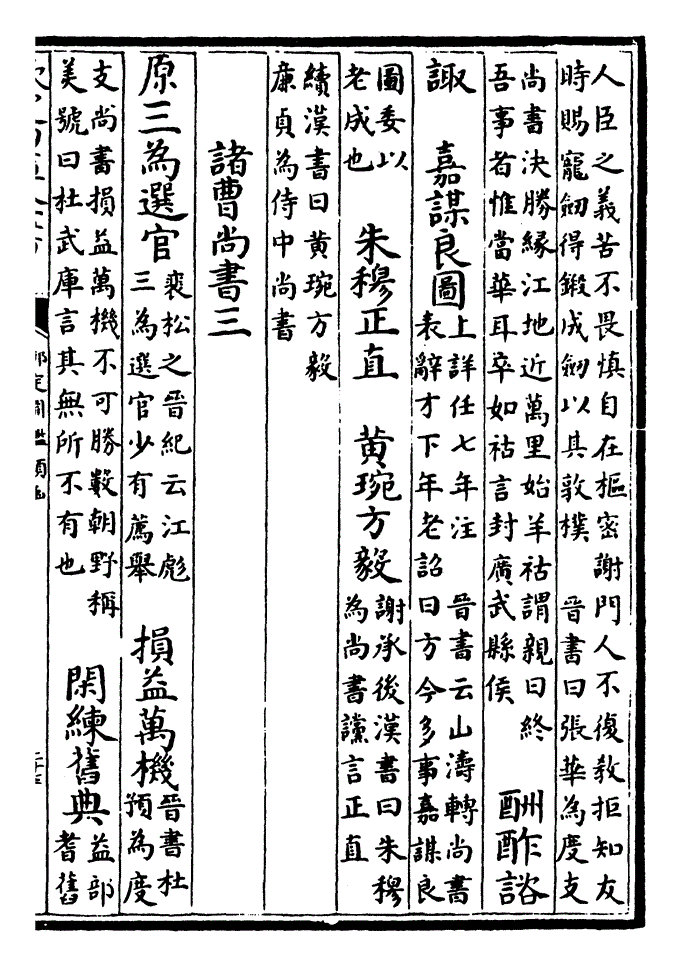 人臣之義苦不畏慎自在樞密謝門人不復教拒知友
時賜寵劒得鍛成劒以其敦樸　晉書曰張華為度支
尚書決勝緣江地近萬里始羊祜謂親曰終
吾事者惟當華耳卒如祜言封廣武縣侯
酬酢諮
諏　嘉謀良圖
上詳任七年注　晉書云山濤轉尚書
表辭才下年老詔曰方今多事嘉謀良
圖委以
老成也
朱穆正直　黄琬方毅
謝承後漢書曰朱穆
為尚書讜言正直
續漢書曰黄琬方毅
廉貞為侍中尚書
諸曹尚書三
原三為選官
裴松之晉紀云江彪
三為選官少有薦舉
損益萬機
晉書杜
預為度
支尚書損益萬機不可勝數朝野稱
美號曰杜武庫言其無所不有也
閑練舊典
益部
耆舊